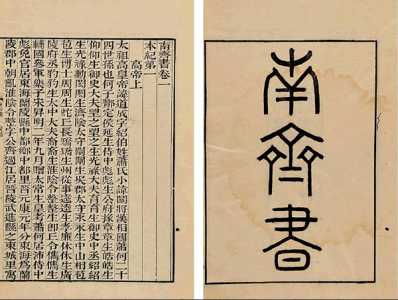 南齊書
南齊書卷一
本紀第一
高帝上
太祖高皇帝諱道成字紹伯姓蕭氏小諱鬬將漢相國蕭何二十
四世孫也何子酇定侯延生侍中彪彪生公府掾章章生皓皓生
仰仰生御史大夫望之望之生光祿大夫育育生御史中丞紹紹
生光祿勳閎閎生濟陰太守闡闡生吳郡太守永永生中山相苞
苞生博士周周生蛇丘長矯矯生州從事逵逵生孝廉休休生廣
陵府丞豹豹生太中大夫裔裔生淮陰令整整生卽丘令儁儁生
輔國參軍樂子宋昇明二年九月贈太常生皇考蕭何居沛侍中
彪免官居東海蘭陵縣中都鄉中都里晉元康元年分東海爲蘭
陵郡中朝亂淮陰令整字公齊過江居晉陵武進縣之東城里寓